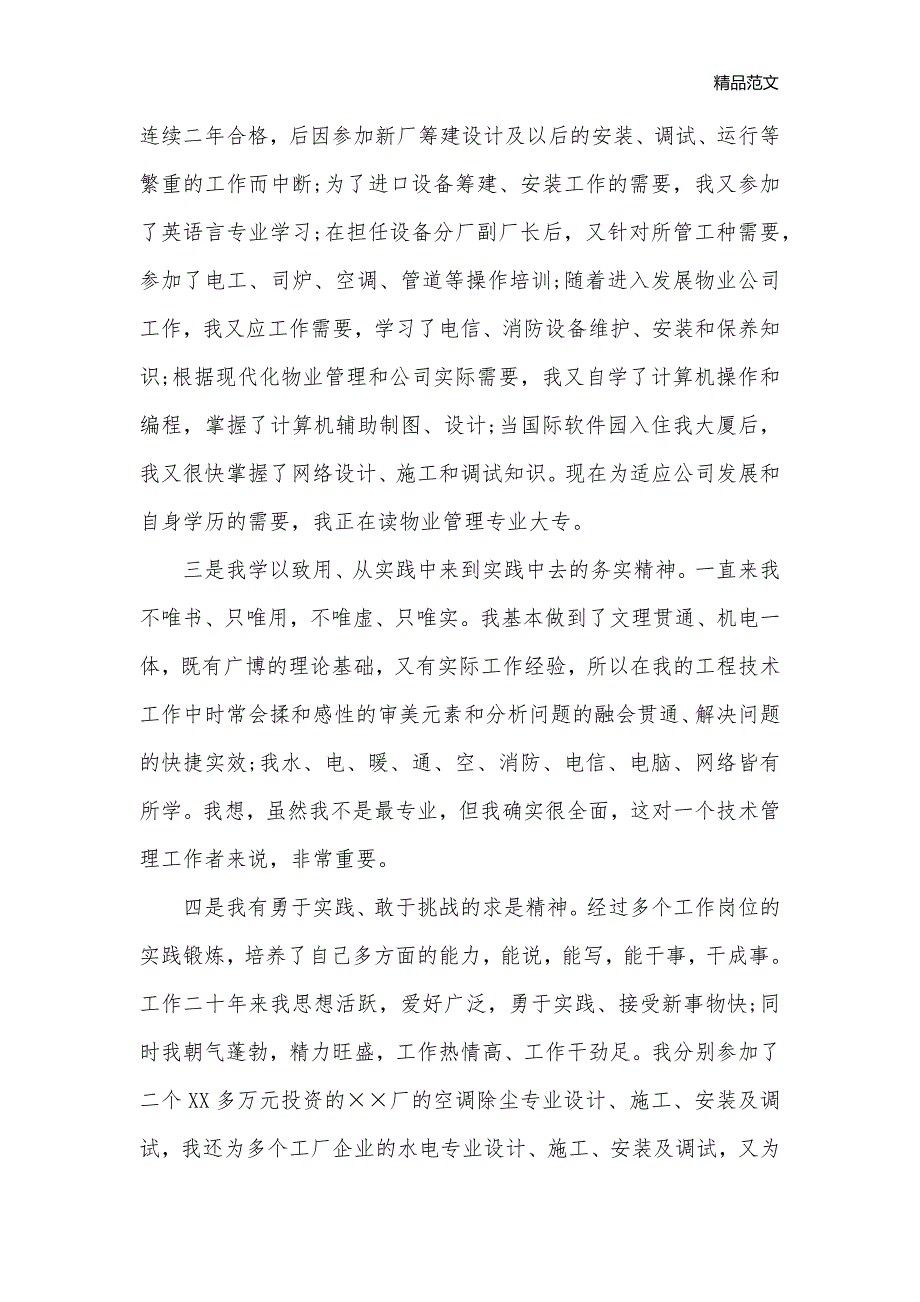 精品范文
连续二年合格，后因参加新厂筹建设计及以后的安装、调试、运行等
繁重的工作而中断;为了进口设备筹建、安装工作的需要，我又参加
了英语言专业学习;在担任设备分厂副厂长后，又针对所管工种需要，
参加了电工、司炉、空调、管道等操作培训;随着进入发展物业公司
工作，我又应工作需要，学习了电信、消防设备维护、安装和保养知
识;根据现代化物业管理和公司实际需要，我又自学了计算机操作和
编程，掌握了计算机辅助制图、设计;当国际软件园入住我大厦后，
我又很快掌握了网络设计、施工和调试知识。现在为适应公司发展和
自身学历的需要，我正在读物业管理专业大专。
三是我学以致用、从实践中来到实践中去的务实精神。一直来我
不唯书、只唯用，不唯虚、只唯实。我基本做到了文理贯通、机电一
体，既有广博的理论基础，又有实际工作经验，所以在我的工程技术
工作中时常会揉和感性的审美元素和分析问题的融会贯通、解决问题
的快捷实效;我水、电、暖、通、空、消防、电信、电脑、网络皆有
所学。我想，虽然我不是最专业，但我确实很全面，这对一个技术管
理工作者来说，非常重要。
四是我有勇于实践、敢于挑战的求是精神。经过多个工作岗位的
实践锻炼，培养了自己多方面的能力，能说，能写，能干事，干成事。
工作二十年来我思想活跃，爱好广泛，勇于实践、接受新事物快;同
时我朝气蓬勃，精力旺盛，工作热情高、工作干劲足。我分别参加了
二个 XX 多万元投资的××厂的空调除尘专业设计、施工、安装及调
试，我还为多个工厂企业的水电专业设计、施工、安装及调试，又为